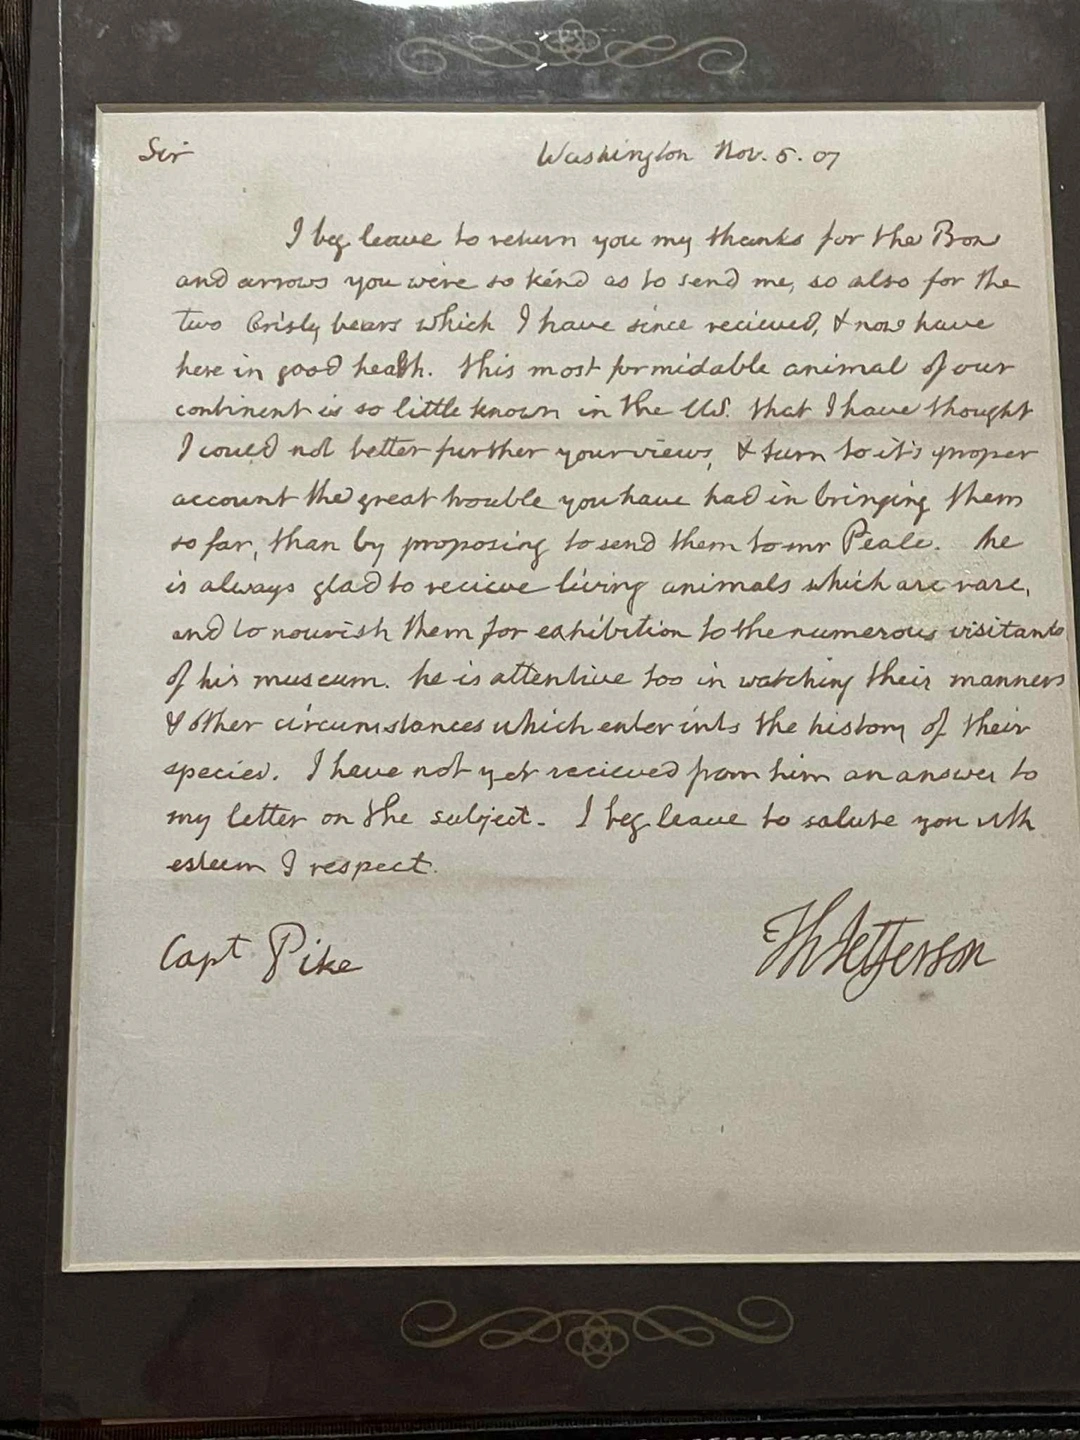 Sir
Washington Nov. 5. 07
I beg leave to return you my thanks for the Bow
and arrows you were so kind as to send me, so also for the
two Grisly bears which I have since recieved, & now have
here in good health. this most formidable animal of our
continent is so little known in the U.S. that I have thought
I could not better further your views, & turn to it's proper
account the great trouble you have had in bringing them
so far, than by proposing to send them to mr Peale. he
is always glad to recieve living animals which are rare,
and to nourish them for exhibition to the numerous visitants
of his museum. he is attentive too in watching their manners
& other circumstances which enter into the history of their
species. I have not yet recieved from him an answer to
my letter on the subject. I beg leave to salute you with
esteem & respect.
Capt Pike
Th Jefferson